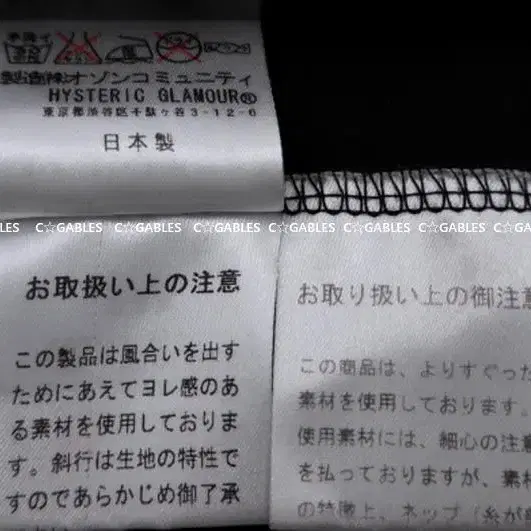 手洗イ
ドライ
製造㈱オゾンコミュニティ
HYSTERIC GLAMOUR®
東京都渋谷区千駄ヶ谷3-12-6
日本製
LES C☆GABLES C☆GABLES C☆GABLES C☆GABLES C☆GABLES C☆GABLES C☆GABLES
お取扱い上の注意
この製品は風合いを出す
ためにあえてヨレ感のあ
る素材を使用しておりま
す。斜行は生地の特性で
すのであらかじめ御了承
お取り扱い上の御注意
この商品は、よりすぐった
素材を使用しております。
使用素材には、細心の注意
を払っておりますが、素材
の特徴上、ネップ（糸が